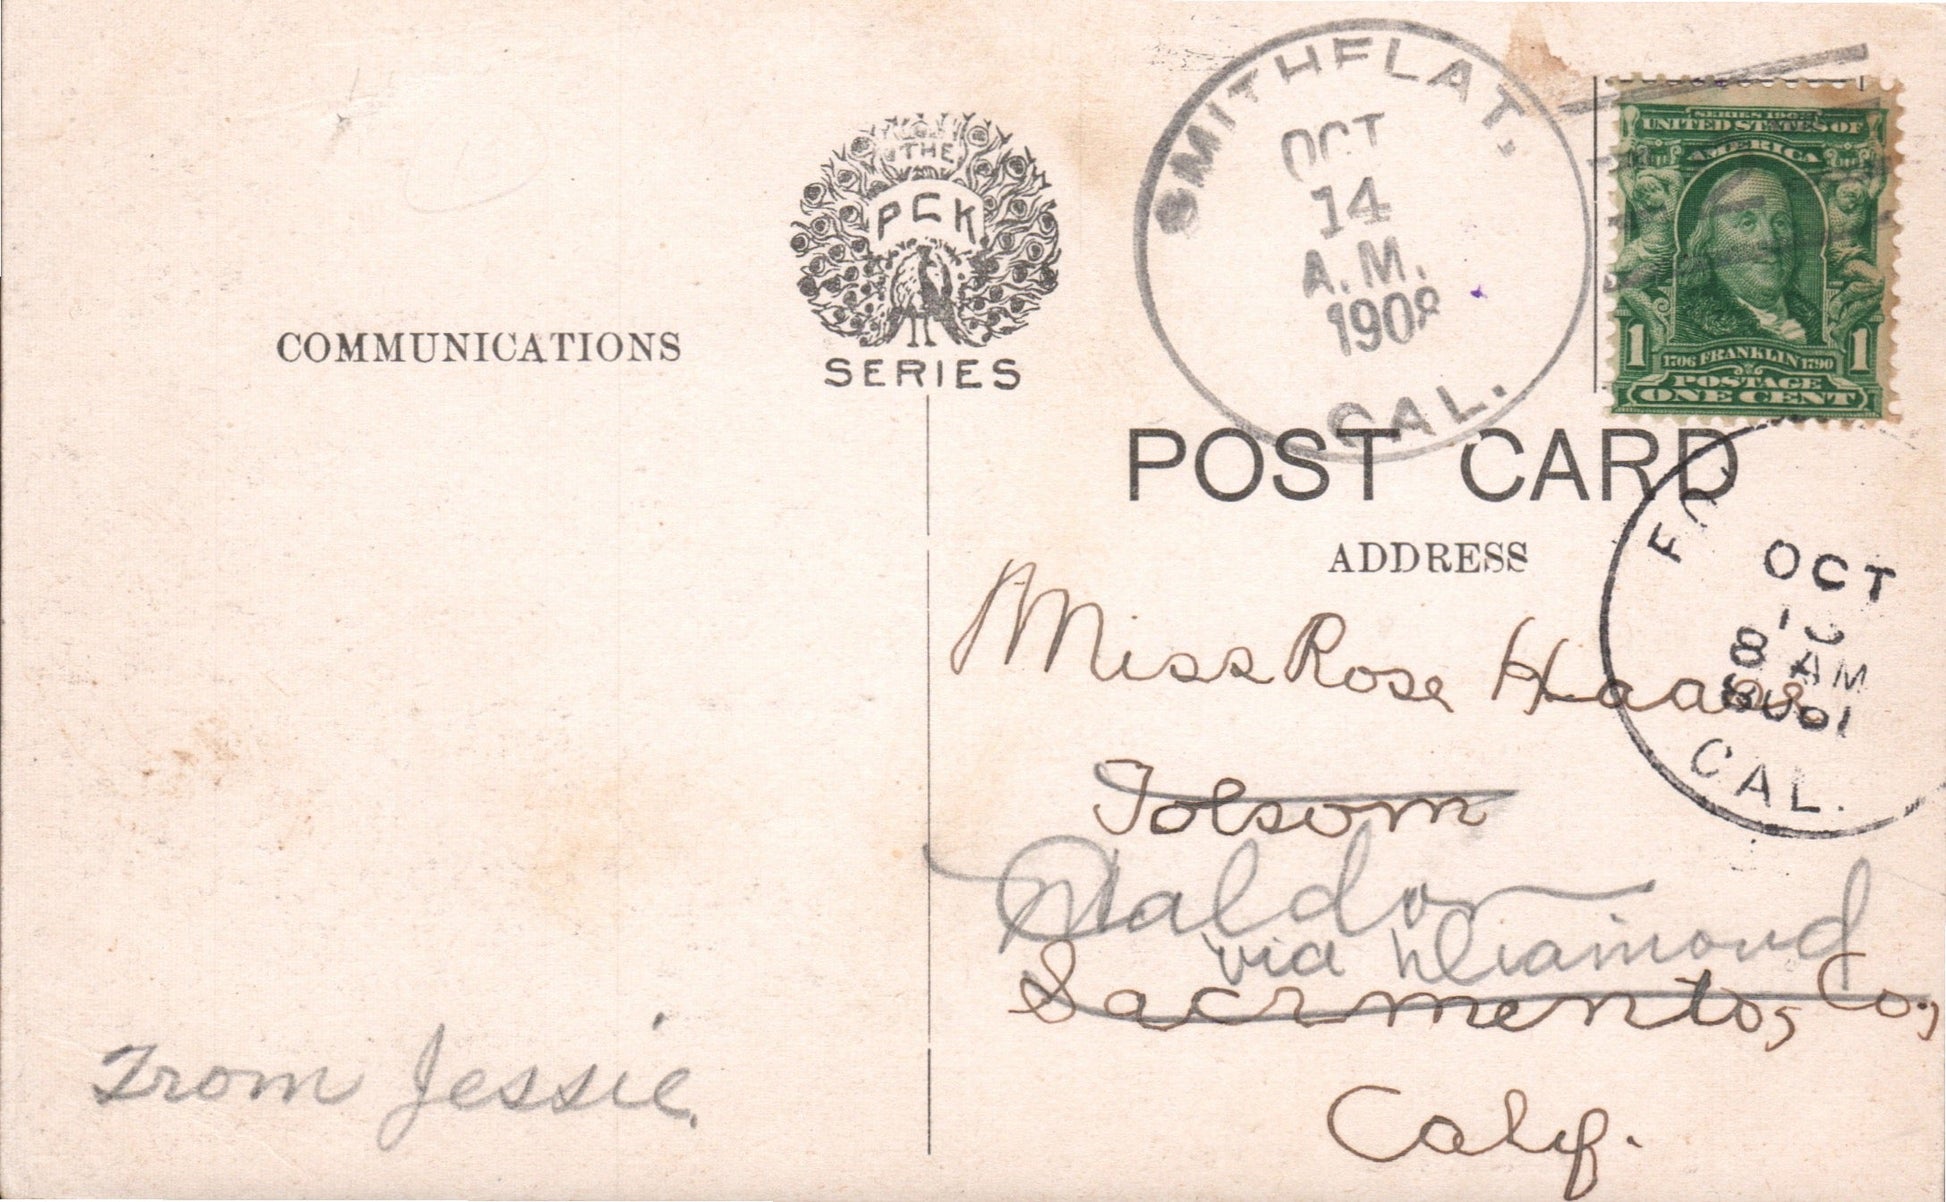 THE
PCK
SERIES
COMMUNICATIONS
From Jessie.
SMITHFLAT,
OCT
14
A.M.
1908
CAL.
SERIES 1902
UNITED STATES OF
AMERICA
1 1
1706 FRANKLIN 1790
POSTAGE
ONE CENT
POST CARD
ADDRESS
OCT
8 AM
CAL.
Miss Rose Haas
Folsom
Waldo
via Diamond
Sacramento, Co,
Calif.